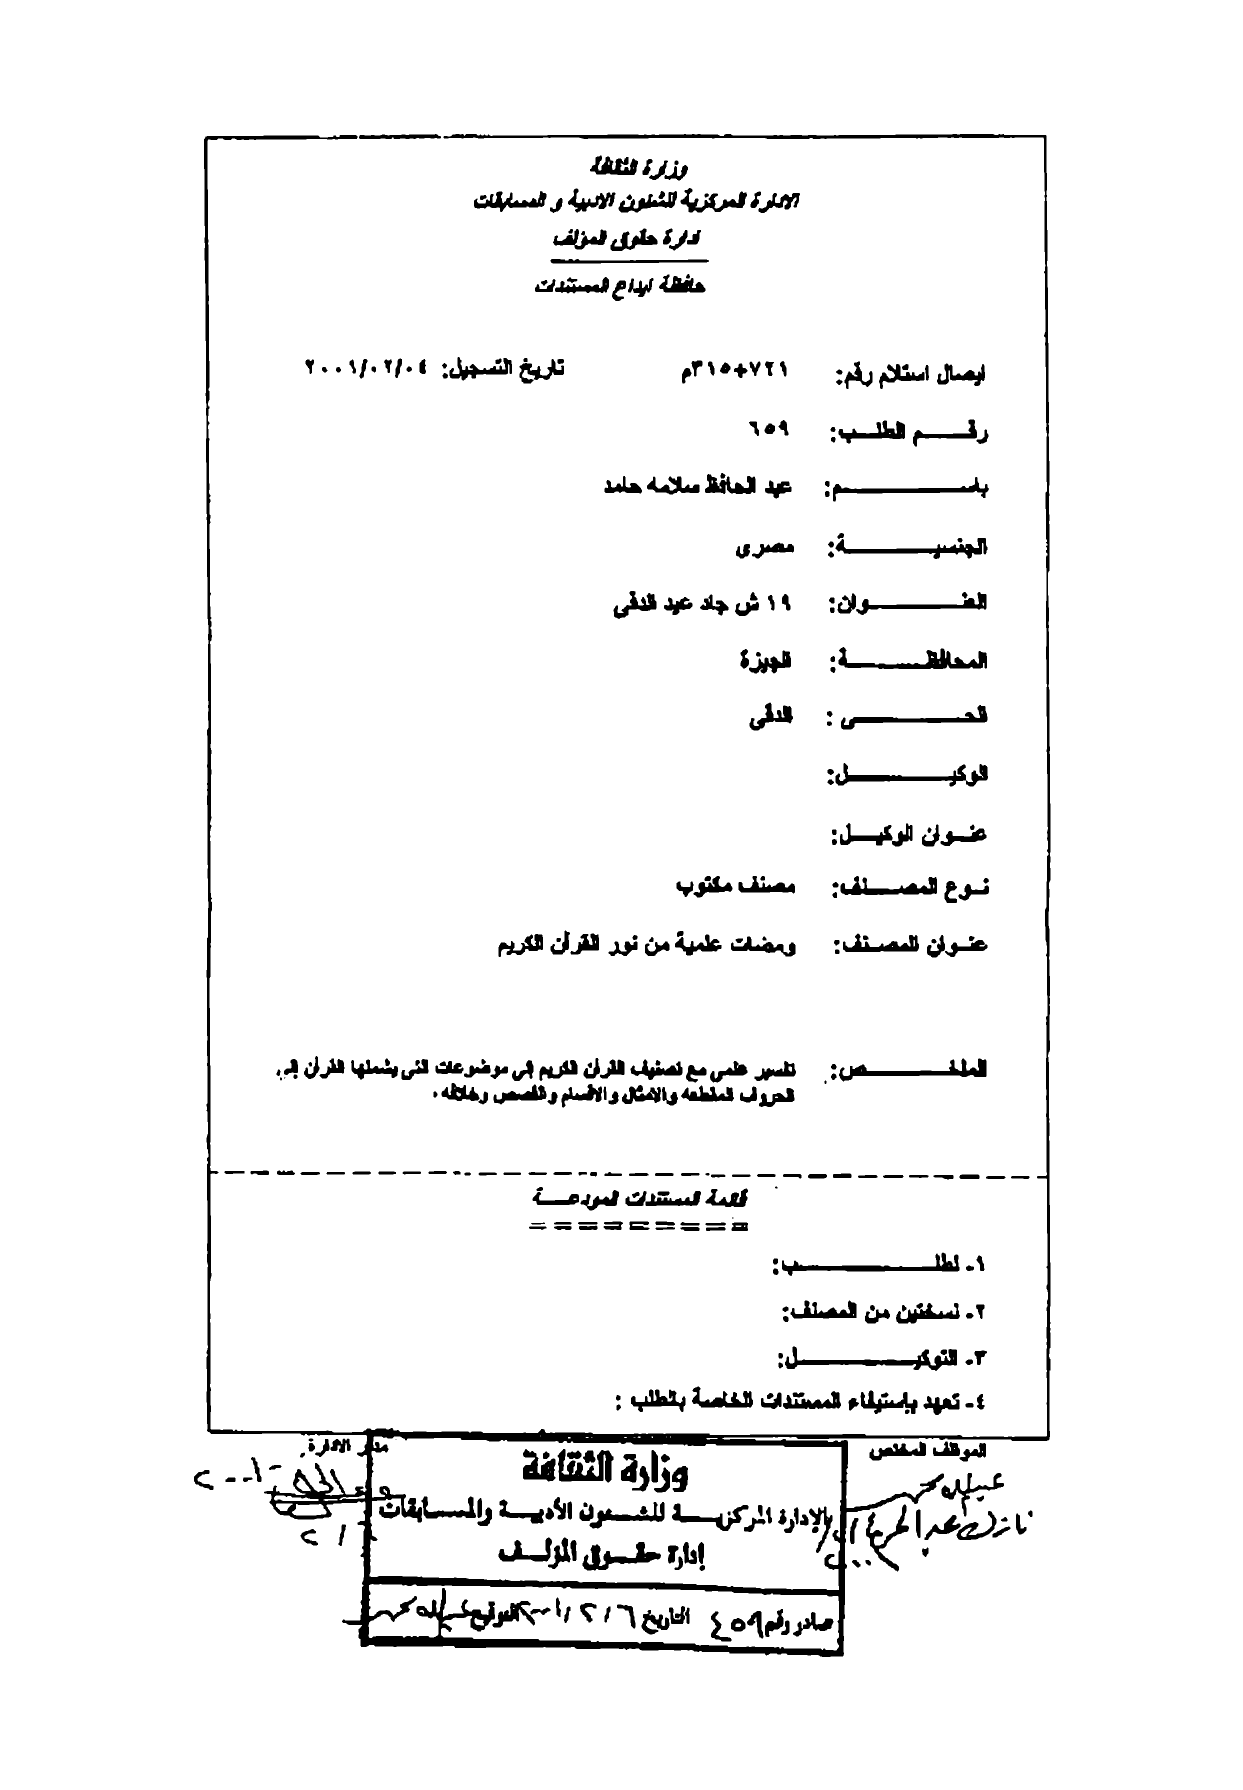 وزارة الثقافة
الادارة المركزية للشئون الادبية و المسابقات
ادارة حقوق المؤلف
حافظة ايداع المستندات
ايصال استلام رقم: ٧٢١+٣١٥م تاريخ التسجيل: ٢٠٠١/٠٢/٠٤
رقـــم الطلــب: ٦٥٩
باســـــــــم: عبد الحافظ سلامه حامد
الجنسيـــــــــة: مصرى
العنـــــــــوان: ١٩ ش جاد عيد الدقى
المحافظـــــــة: الجيزة
الحـــــــــى : الدقى
الوكيـــــــــل:
عنــوان الوكيــل:
نــوع المصـــنف: مصنف مكتوب
عنــوان المصــنف: ومضات علمية من نور القرآن الكريم
الملخـــــــــص: تفسير علمى مع تصنيف القرآن الكريم إلى موضوعات التى يشملها القرآن إلى
الحروف المقطعه والامثال والاقسام والقصص وخلافه .
قائمة المستندات المودعـــة
==========
١- لطلـــــــــب:
٢- نسختين من المصنف:
٣- التوكيـــــــــل:
٤- تعهد باستيفاء المستندات الخاصة بالطلب :
الموظف المختص مدير الادارة
وزارة الثقافة
الإدارة المركزيــــة للشــئون الأدبيــــة والمســـابقات
إدارة حقـــوق المؤلــف
صادر رقم ٤٥٩ التاريخ ٢٠٠١/٢/٦ التوقيع